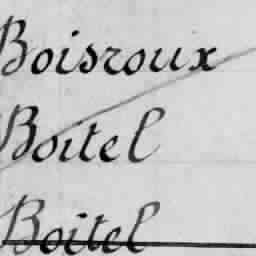 Boisroux
Boitel
Boitel